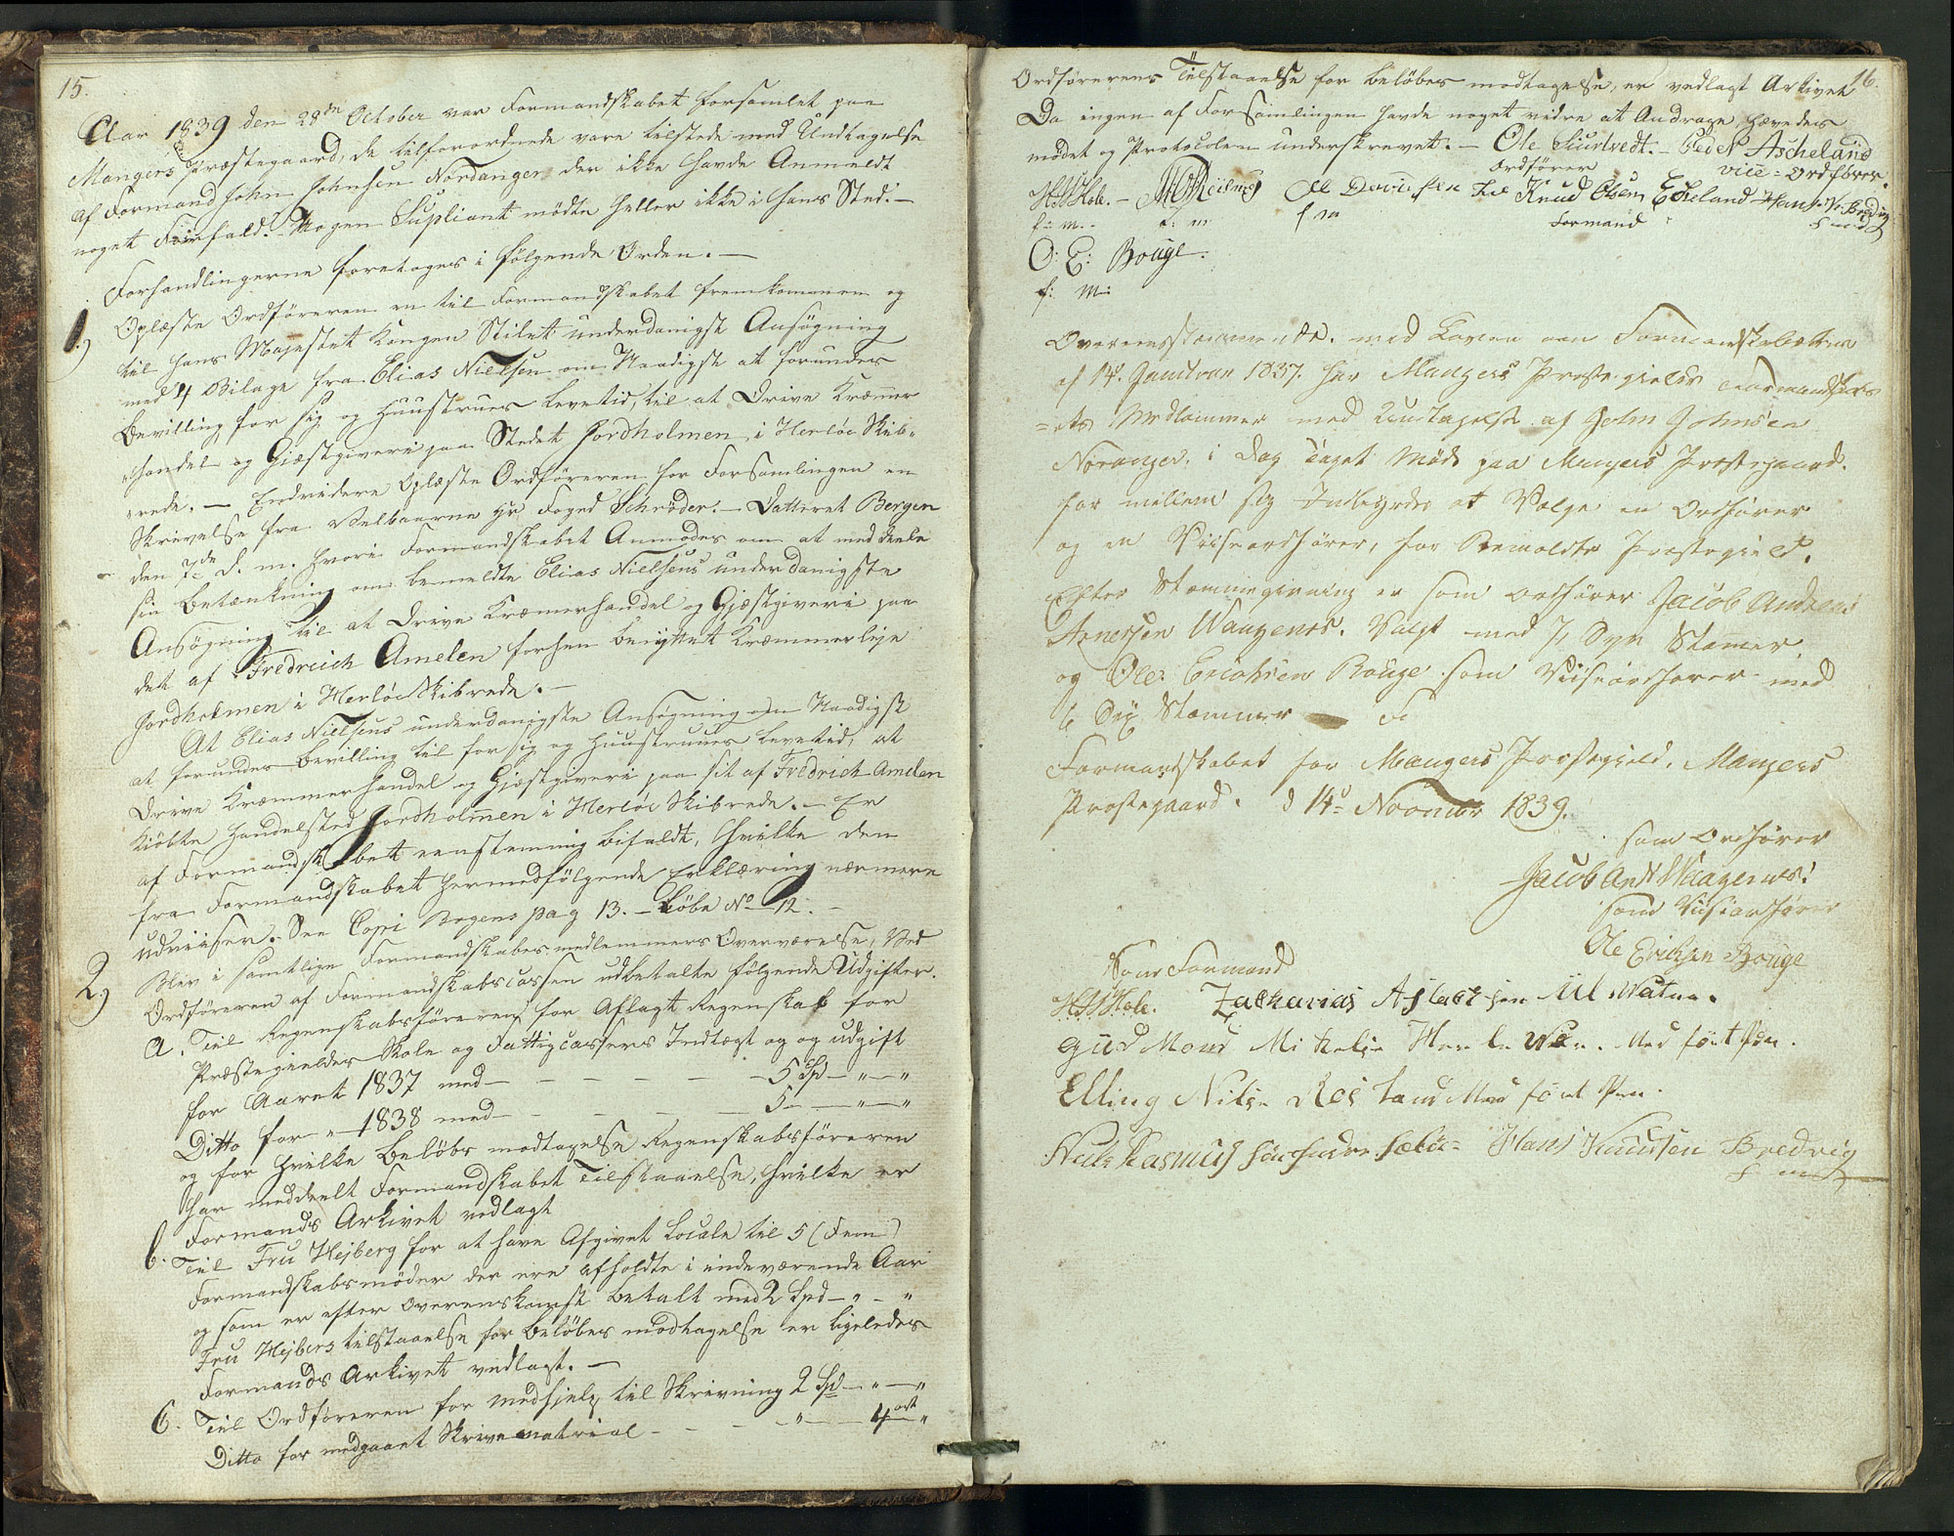 15.
Aar 1839 den 28de October var Formandskabet forsamlet paa
Mangers Præstegaard, de tilforordnede vare tilstede med Undtagelse
af Formand John Johnsen Nordanger der ikke havde Anmeldt
noget Forfald. Nogen Supliant mødte heller ikke i hans Sted. —
Forhandlingerne foretoges i følgende Orden. —
1.) Oplæste Ordføreren en til Formandskabet fremkommen og
til Hans Majestæt Kongen Stilet underdanigst Ansøgning
med 4 Bilage fra Elias Nielsen om Naadigst at forundes
Bevilling for sig og Huustrues Levetid, til at Drive Kræmmer
handel og Giæstgiveri paa Stedet Jordholmen i Herløe Skib-
rede. — Endvidere Oplæste Ordføreren for Forsamlingen en
Skrivelse fra Velbaarne Hr Foged Schrøder. — Datteret Bergen
den 7de d. m. hvori Formandskabet Anmodes om at meddeele
sin Betænkning om bemeldte Elias Nielsens underdanigste
Ansøgning til at Drive Kræmerhandel og Gjæstgiveri paa
det af Fredreich Amelen forhen benyttet Kræmmerleje
Jordholmen i Herløe Skibrede. —
At Elias Nielsens underdanigste Ansøgning om Naadigst
at forundes Bevilling til for sig og Huustrues Levetid, at
Drive Kræmmerhandel og Gjæstgiveri paa sit af Fredrich Amelen
kiöbte Handelsted Jordholmen i Herløe Skibrede. — Er
af Formandskabet eenstemmig bifaldt, hvilke den
fra Formandskabet hermedfølgende Erklæring nærmere
udviiser. See Copi Bogens pag 13. — Løbe No 12. —
2.) Blev i samtlige Formandskabes medlemmers Overværelse, Ved
Ordføreren af Formandskabscassen udbetalte følgende Udgifter.
a. Til Regenskabsføreren for Aflagt Regenskab for
Præstegieldes Skole og Fattigcassers Indtægt og og udgift
for Aaret 1837 med — — — — 5 Spd — " — "
Ditto for " 1838 med — — — — 5 — — " — "
og for hvilke Beløbs modtagelse Regenskabsføreren
har meddeelt Formandskabet Tilstaaelse, hvilke er
Formands Arkivet vedlagt
b. Til Fru Hejberg for at have Afgivet Locale til 5 (Fem)
Formandskabsmøder der ere afholdte i indeværende Aar
og som er efter Overenskomst betalt med 2 Spd — " — "
Fru Hejbergs tilstaaelse for Beløbes modtagelse er ligeledes
Formands Arkivet vedlagt. —
C. Til Ordføreren for medhjelp til Skrivning 2 Spd — " — "
Ditto for medgaaet Skrivematrial — - " — 4 ort "
16.
Ordførerens Tilstaaelse for Beløbes modtagelse, er vedlagt Arkivet
Da ingen af Forsamlingen havde noget vidre at Andrage hævedes
mødet og Protocolen underskrevet. — Ole Suurtvedt. — Peder Ascheland
Ordfører vice = Ordfører.
HHHole. — Ole Knud Olsen Echeland Hans K: Bredvig
f: m. f: m f m Formand f m
O: E: Bouge.
f: m:
Overensstemmende. med Loven om Formandskaberne
af 14. Januar 1837. har Mangers Præstegields Formandskab
=ets Medlemmer med Undtagelse af John Johnsen
Noranger. i Dag taget Møde paa Mangers Præstegaard.
for mellem sig Indbyrdes at Vælge en Ordfører
og en Viiseordfører, for Bemeldte Præstegield.
Efter Stemmegivning er som ordfører Jacob Andreas
Arnessen Waagenes. Valgt med 7, Syv Stemer
og Ole Erichsen Bouge som Viiseordfører med
6 Sex Stemmer
Formandskabet for Mangers Præstegield. Mangers
Præstegaard. d 14de November 1839.
som Ordfører
Jacob And Waagenes.
som Viiseordfører
Ole Erichsen Bouge
Som Formand
HHHole. Zakharias Aslachsen
Gudmond Mikkelsen Med ført Pen.
Elling Nilsen Med ført Pen.
Niels Rasmus Hans Knudsen Bredvig
f m